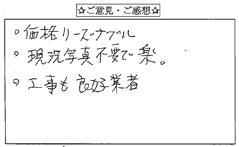 ☆ご意見・ご感想☆
○価格リーズナブル
○現況写真不要で楽。
○工事も良好業者